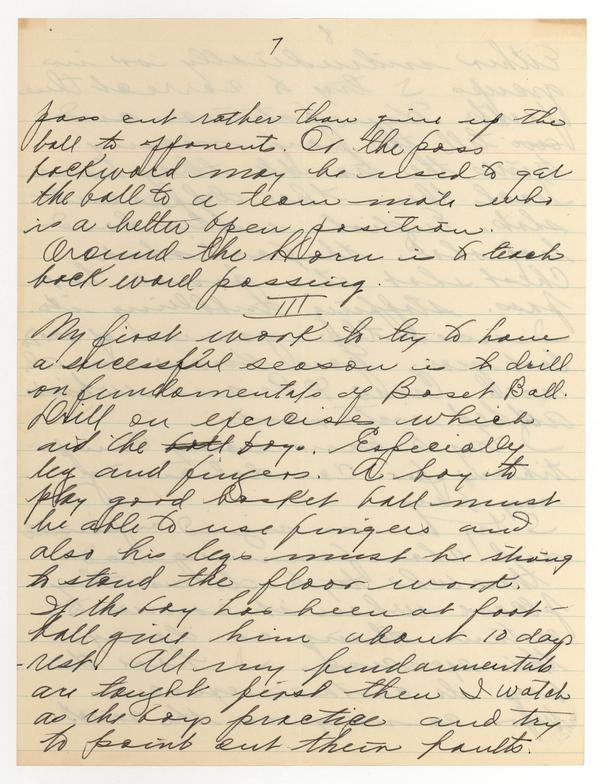 7
pass out rather than give up the
ball to opponents. Or the pass
backward may be used to get
the ball to a team mate who
is a better open position.
Around the Horn is to teach
back word passing.
III
My first work to try to have
a sucessful season is to drill
on fundamentals of Basket Ball.
Drill on exercises which
aid the ball boys. Especially
leg and fingers. A boy to
play good basket ball must
be able to use fingers and
also his legs must be strong
to stand the floor work.
If the boy has been at foot-
ball give him about 10 days
-rest. All my fundamentals
are taught first then I watch
as the boys practice and try
to point out their faults.